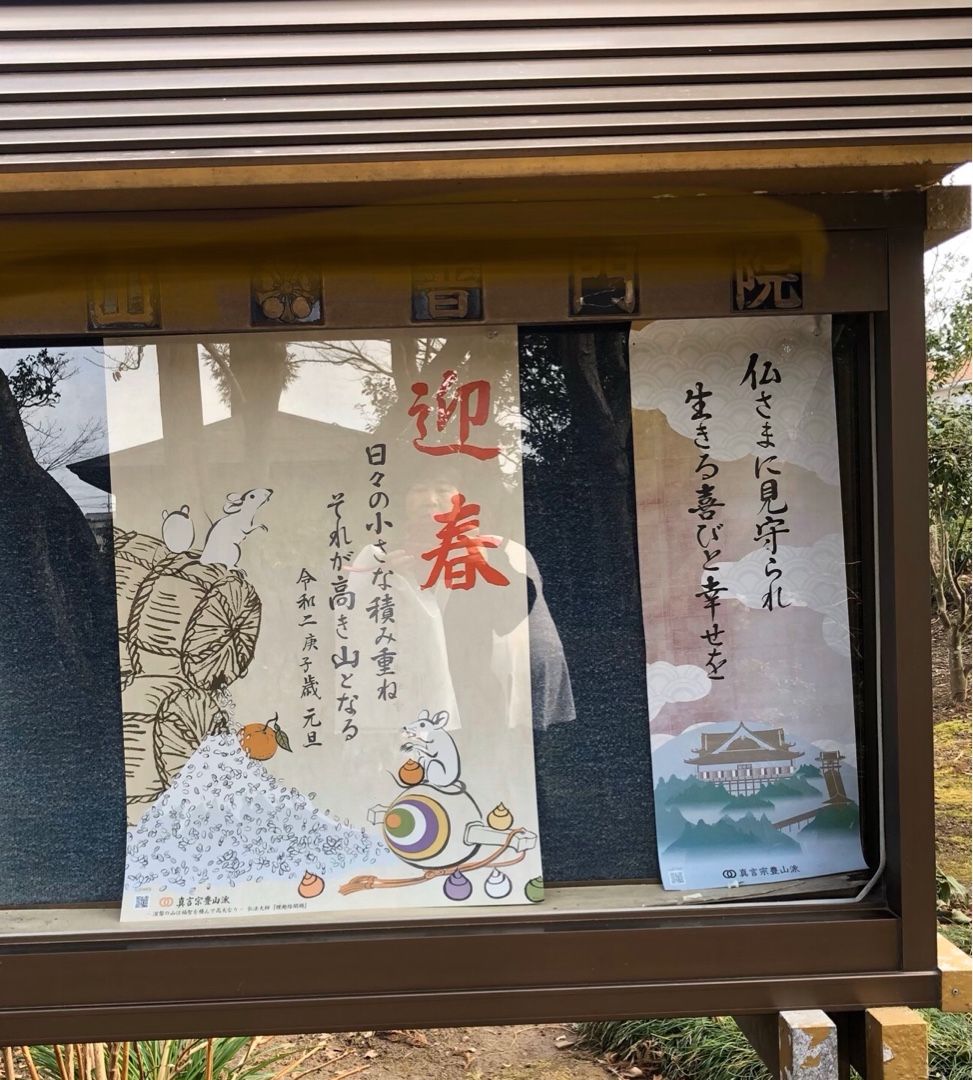 山 普門院
迎春
日々の小さな積み重ね
それが高き山となる
令和二庚子歳 元旦
真言宗豊山派
仏さまに見守られ
生きる喜びと幸せを
真言宗豊山派